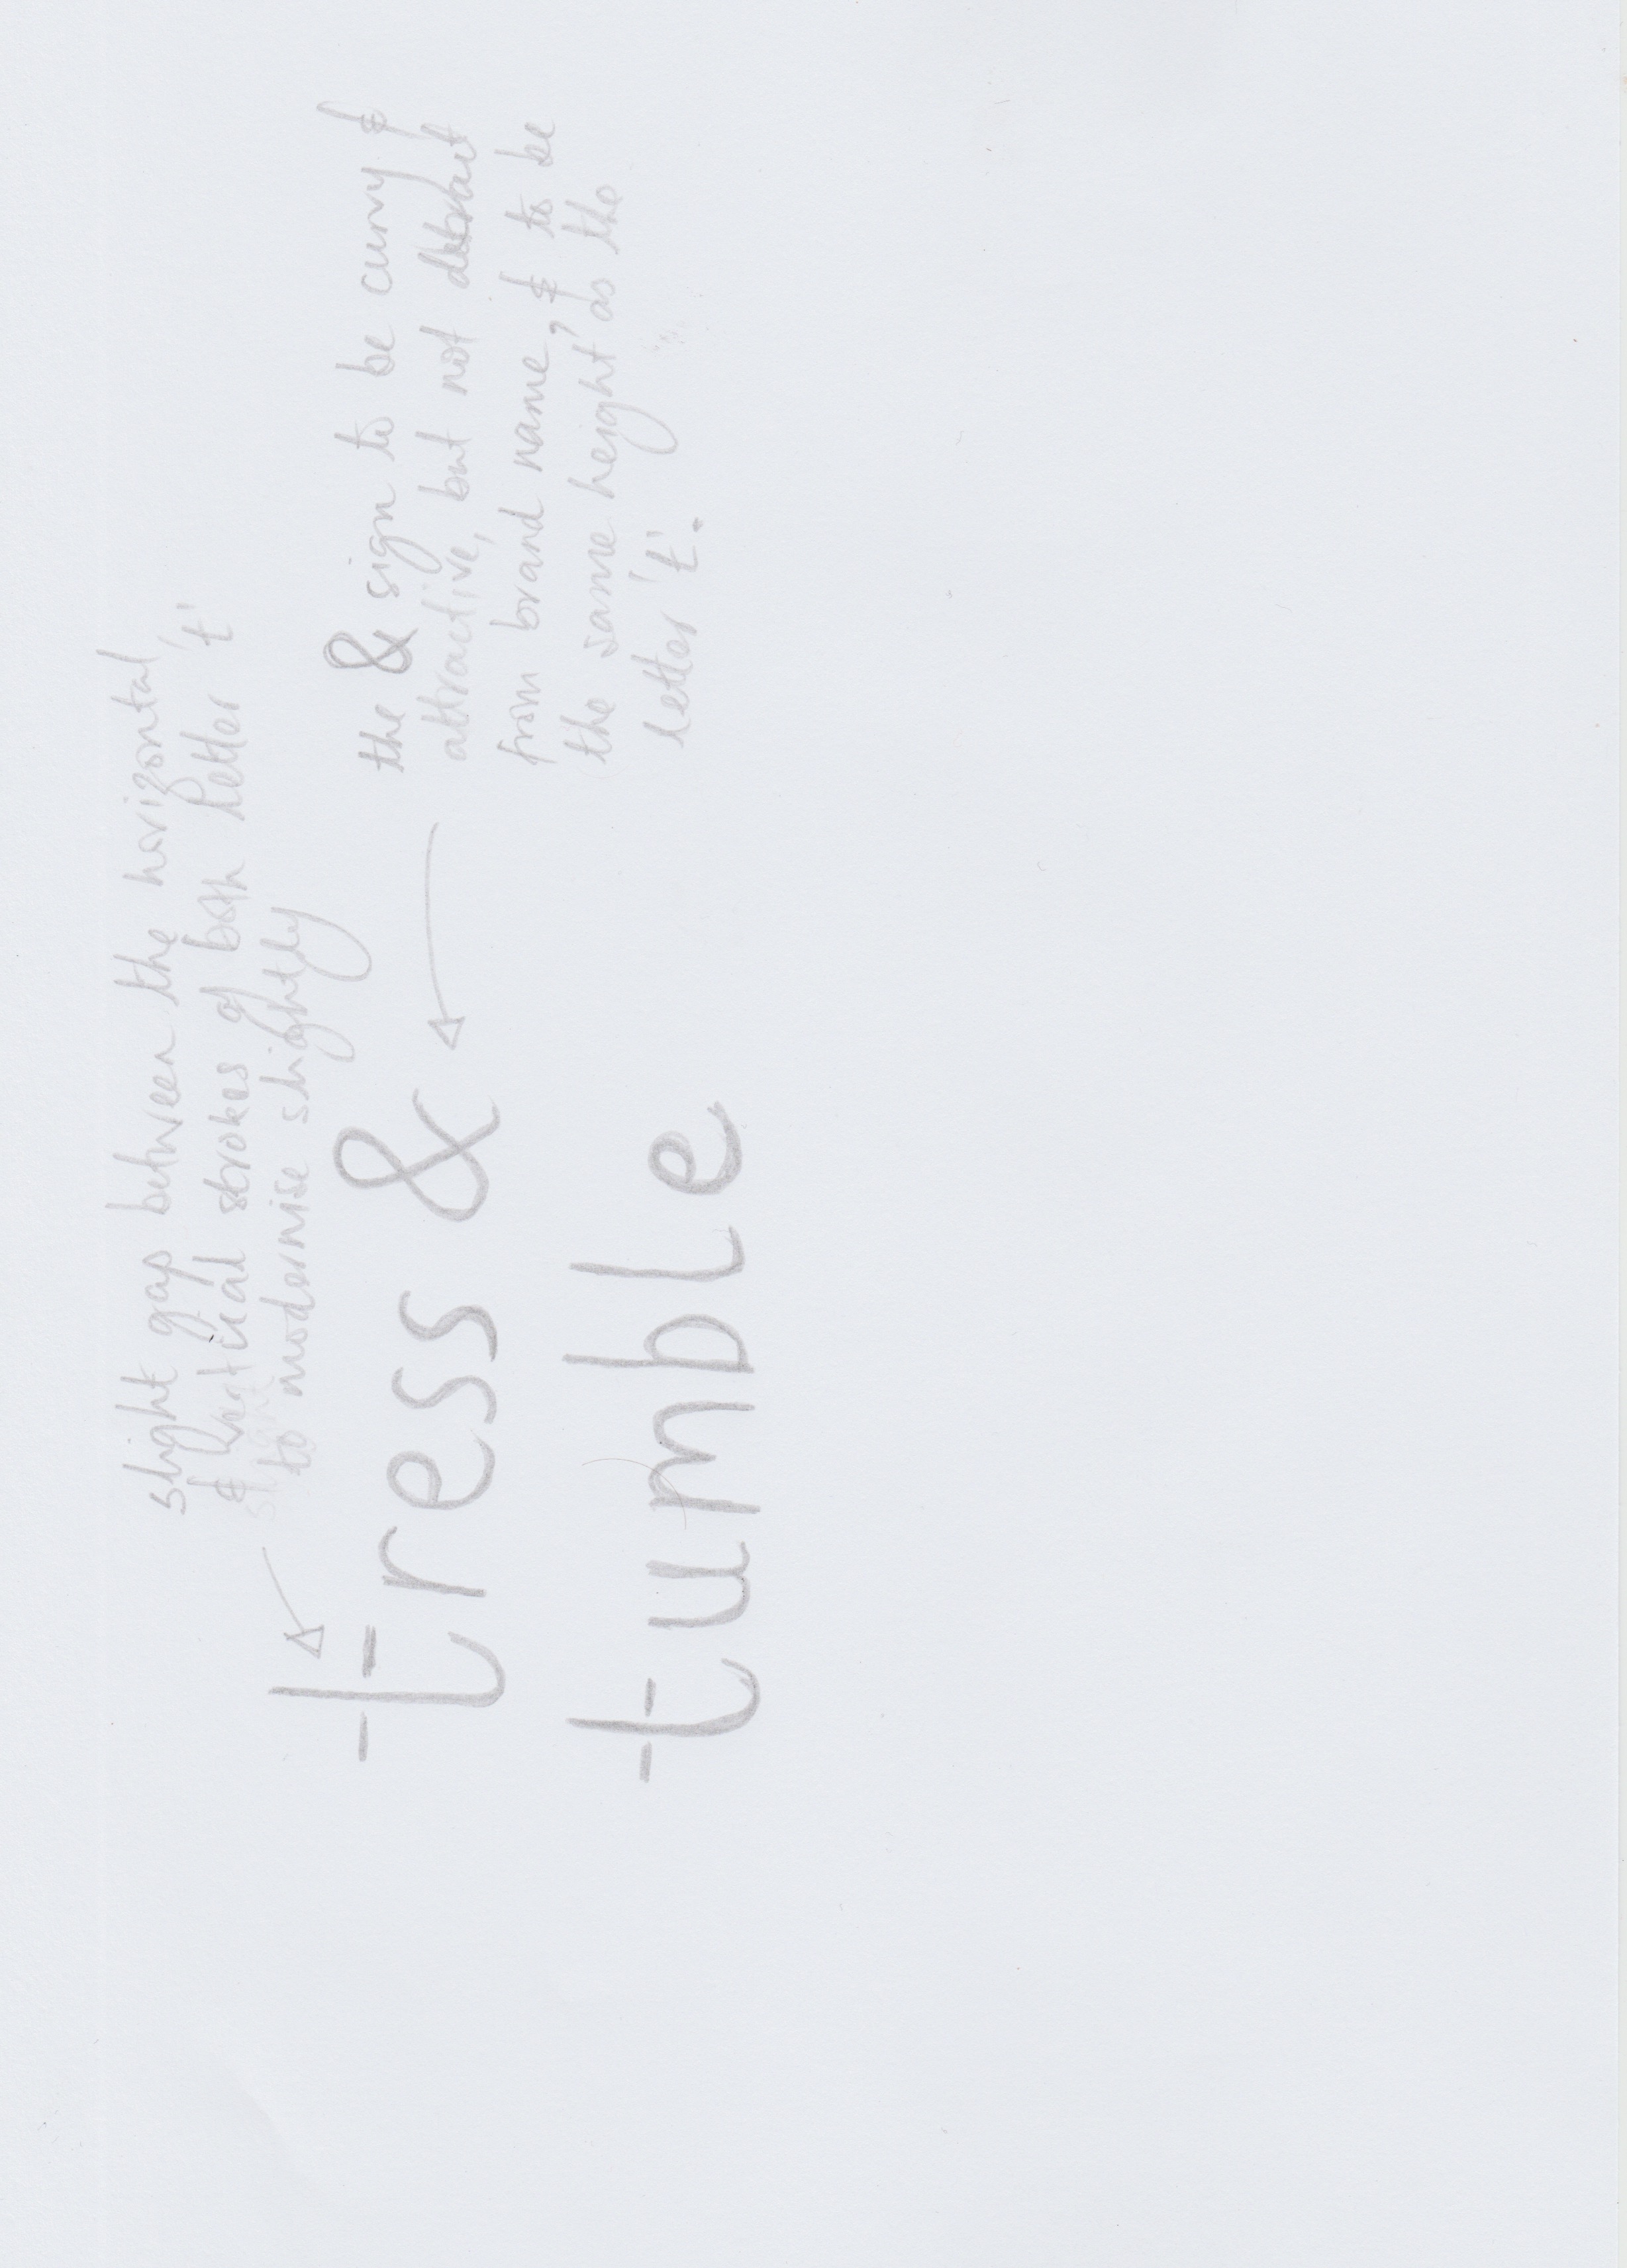 slight gap between the horizontal
& vertical strokes of both letter 't'
to modernise slightly
the & sign to be curvy &
attractive, but not detract
from brand name, & to be
the same height as the
letter 't'.
tress &
tumble